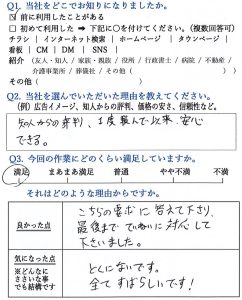 Q1. 当社をどこでお知りになりましたか。
☑ 前に利用したことがある
□ 初めて利用した ➡ 下記に○を付けてください。(複数回答可)
チラシ | インターネット検索 | ホームページ | タウンページ
看板 | CM | DM | SNS |
紹介 (友人・知人 / 家族・親族 / 役所 / 病院 / 不動産 /
介護事業所 / 葬儀社 / その他( )
その他( )
Q2. 当社を選んでいただいた理由を教えてください。
(例) 広告イメージ、知人からの評判、価格の安さ、信頼性など。
知人からの評判、1度頼んで以来、安心
できる。
Q3. 今回の作業にどのくらい満足していますか。
満足 まあまあ満足 普通 やや不満 不満
それはどのような理由からですか。
良かった点
こちらの要望に答えて下さり、
最後までていねいに対応して
下さいました。
気になった点
※どんなに
ささいな事
でも結構です
とくにないです。
全てすばらしいです!